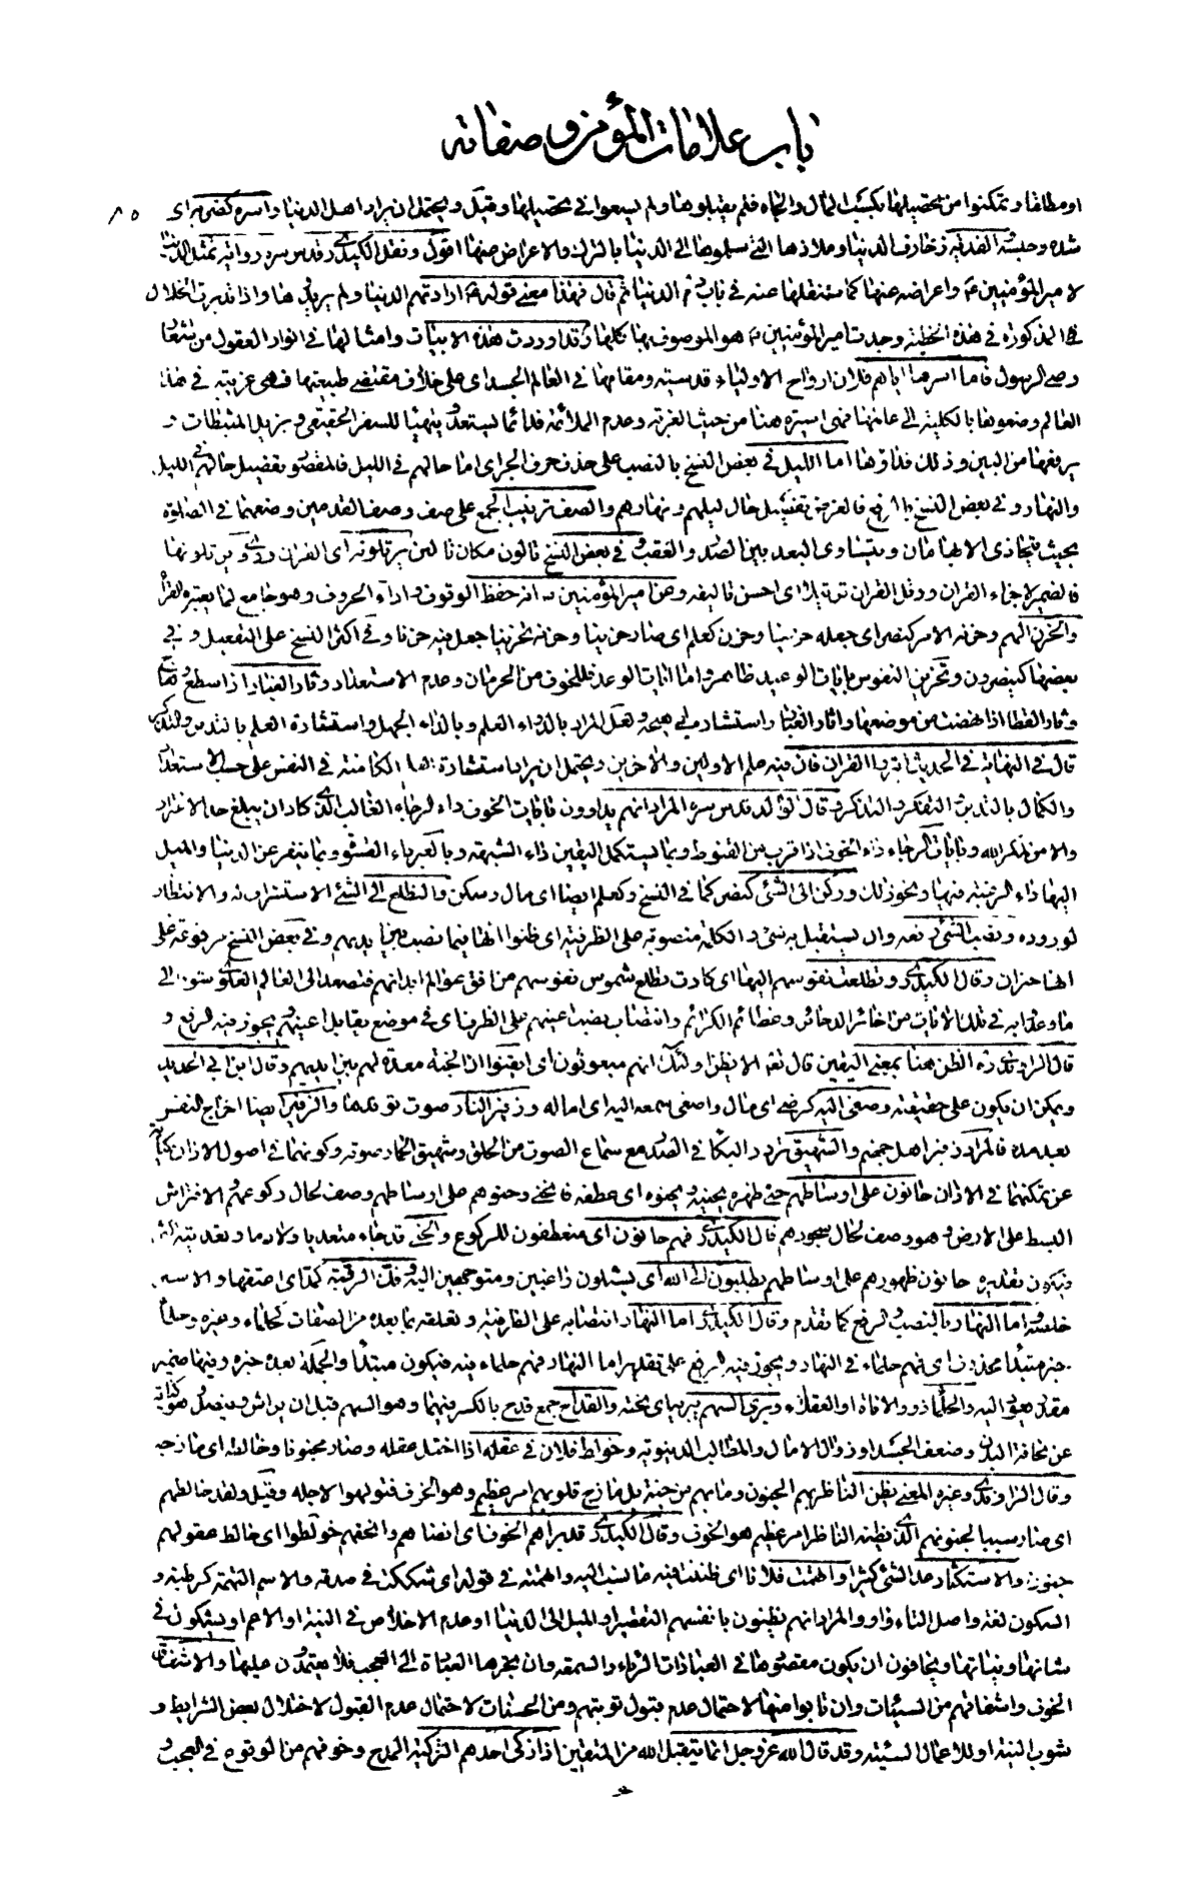 باب علامات المؤمن و صفاته
٨٥
او مطلقا و تمكنوا من تحصيلها بكسب المال و الجاه فلم يقبلوها و لم يسعوا في تحصيلها و قيل و يحتمل ان يراد اهل الدنيا و اسره كضربه اى
شده و حبسه الفدية زخارف الدنيا و ملاذها التي سلموها الى الدنيا بالترك و الاعراض عنها اقول و نقل الكيدرى قدس سره رواية تمثل الدنيا
لامير المؤمنين ع و اعراضه عنها كما سننقلها عنه في باب ذم الدنيا ثم قال فهذا معنى قوله ع ارادتهم الدنيا و لم يريدوها و اذا تدبرت الخلال
المذكورة في هذه الخطبة وجدت امير المؤمنين ع هو الموصوف بها كلها و قد اوردت هذه الابيات و امثالها في انوار العقول من اشعار
وصى الرسول فاما اسرها اياهم فلان ارواح الاولياء قدسية و مقامها في العالم الجسداى على خلاف مقتضى طبيعتها فهى غريبة في هذا
العالم و ضموها بالكلية الى عالمها فهى اسيرة هنا من حيث الغربة و عدم الملائمة فلانما يستعد و يتهيئا للسفر الحقيقى و يزيل المثبطات و
يرفعها من البين و ذلك فداؤها اما الليل في بعض النسخ بالنصب على حذف حرف الجر اى اما حالهم في الليل فالمقصود تفصيل حالهم في الليل
و النهار و في بعض النسخ بالرفع فالغرض تفصيل حال ليلهم و نهارهم و الصف ترتيب الجمع على صف و صف القدمين وضعهما في الصلوة
بحيث يتحاذى الابهامان و يتساوى البعد بين الصدر و العقب و في بعض النسخ تالون مكان تالين يرتلونه اى القران و روى يرتلونها
فالضمير لاجزاء القران و رتل القران ترتيلا اى احسن تاليفه و عن امير المؤمنين ع انه حفظ الوقوف و اداء الحروف و هو جامع لما يعتبره القراء
و الحزن الهم و حزنه الامر كنصر اى جعله حزينا و حزن كعلم اى صار حزينا و حزنه تحزينا جعل فيه حزنا و في اكثر النسخ على التفعيل و في
بعضها كينصرون و تحزين النفوس بايات الوعيد ظاهر و اما ايات الوعد فللخوف من الحرمان و عدم الاستعداد و ثار الغبار اذا سطع و هاج
و ثار القطا اذا نهضت من موضعها و اثار الغبار و استثار هيجه و لعل المراد بالدواء العلم و بالداء الجهل و استثارة العلم بالتدبر و التذكر
قال في النهاية في الحديث اثيروا القران فان فيه علم الاولين و الاخرين و يحتمل ان يراد استثارة الكامنة في النفس على حسب الاستعداد
و الكمال بالتدبر و التفكر و التذكر و قال الوالد قدس سره المراد انهم يداوون بايات الخوف داء الرجاء الغالب الذى كاد ان يبلغ حد الاغترار
و الامن لمكر الله و بايات الرجاء داء الخوف اذا قرب من القنوط و بما يستكمل اليقين داء الشبهة و بالعبر داء القسوة و بما ينفر عن الدنيا و الميل
اليها داء الرغبة فيها و نحو ذلك و ركن الى الشئ كنصر كما في النسخ و كعلم ايضا اى مال و سكن و التطلع الى الشئ الاستشراف له و الانتظار
لوروده و نصب الشئ رفعه و ان يستقبل به شئ و الكلمة منصوبة على الظرفية اى ظنوا انها فيما نصب بين ايديهم و في بعض النسخ مرفوعة على
انها خبر ان و قال الكيدرى و تطلعت نفوسهم اليها اى كادت تطلع شموس نفوسهم من افق عوالم ابدانهم فتصعد الى العالم العلوى شوقا الى
ما وعدا به في تلك الايات من ذخائر الدخائر و عظائم الكرائم و انتصاب نصب عينهم على الظرف اى في موضع يقابل اعينهم و يجوز فيه الرفع و
قال الراوندى ره الظن ههنا بمعنى اليقين قال تعالى الا يظن اولئك انهم مبعوثون اى ايقنوا ان الجنة معدة لهم بين ايديهم و قال ابن ابى الحديد
و يمكن ان يكون على حقيقته و صغى اليه كرضى اى مال و اصغى سمعه اليه اى اماله و زفير النار صوت توقدها و الزفير ايضا اخراج النفس
بعد مده فالمراد زفير اهل جهنم و الشهيق تردد البكاء في الصدر مع سماع الصوت من الحلق و شهيق الحمار صوته و كونهما في اصول الاذان كناية
عن تمكنهما في الاذان حانون على اوساطهم حنى ظهره يحنيه و يحنوه اى عطفه فانحنى و حنوهم على اوساطهم وصف لحال ركوعهم و الافتراش
البسط على الارض و هو وصف لحال سجودهم قال الكيدرى فهم حانون اى منعطفون للركوع و الحنى قد جاء متعديا و لازما و بعد
فيكون تقديره حانون ظهورهم على اوساطهم يطلبون الى الله اى يسئلون راغبين و متوجهين اليه و فك الرقبة كمد اى اعتقها و الاسير
خلصه و اما النهار بالنصب او الرفع كما تقدم و قال الكيدرى اما النهار انتصابه على الظرفية و تعلقه بما بعده من الصفات كحلماء و غيره و حلماء
خبر مبتدا محذوف اى فهم حلماء في النهار و يجوز فيه الرفع على تقدير اما النهار فهم حلماء فيه فيكون مبتدا و الجملة بعده خبره و فيها ضمير
مقدر يعود اليه و الحلماء ذوو الاناة او العقلاء و برى السهم يبريه اى نحته و القداح جمع قدح بالكسر فيهما و هو السهم قبل ان يراش و ينصل هو كناية
عن نحافة البدن و ضعف الجسد او زوال الامال و المطالب الدنيوية و خولط فلان في عقله اذا اختل عقله و صار مجنونا و خالطه اى مازجه
و قال الراوندى و غيره المعنى يظن الناظر بهم الجنون و ما بهم من جنة بل مازج قلوبهم امر عظيم و هو الخوف فتولهوا لاجله و قيل و لقد خالطهم
اى صار سببا لجنونهم الذى يظنه الناظر امر عظيم هو الخوف و قال الكيدرى قد براهم الخوف اى انضاهم و انحفهم خولطوا اى خالط عقولهم
جنون و الاستكثار عد الشئ كثيرا و اتهمت فلانا اى ظننت فيه ما نسب اليه و اتهمته في قوله اى شككت في صدقه و الاسم التهمة كرطبة و
السكون لغة و اصل التاء واو و المراد انهم يظنون بانفسهم التقصير او الميل الى الدنيا او عدم الاخلاص في النية او الاعم او يشكون في
شانها و نياتها و يخافون ان يكون مقصودها في العبادات الرياء و السمعة و ان يجرها العبادة الى العجب فلا يعتمدون عليها و الاشفاق
الخوف و اشفاقهم من السيئات و ان تابوا منها لاحتمال عدم قبول توبتهم و من الحسنات لاحتمال عدم القبول لاختلال بعض الشرايط و
شوب النية او للاعمال السيئة و قد قال الله عز و جل انما يتقبل الله من المتقين اذا زكى احدهم التزكية المدح و خوفهم من الوقوع في العجب و